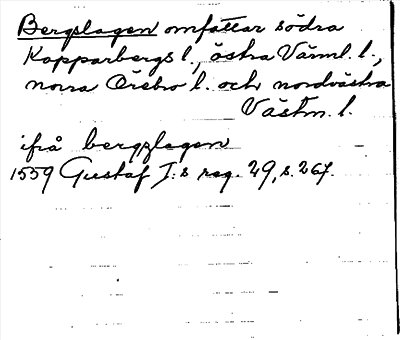 Bergslagen omfattar södra
Kopparbergs l., östra Värml. l.,
norra Örebro l. och nordvästra
Västm. l.
ifrå bergzlagen
1559 Gustaf I:s reg. 29, s. 267.